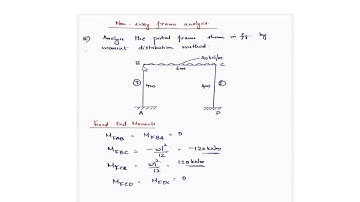 Non-sway frame analysis
Q) Analyse the portal frame shown in fig. by
moment distribution method
40kN/m
B C
6m
I I
4m 4m
A D
Fixed End Moments
MFAB = MFBA = 0
MFBC = -wl²/12 = -120 kNm
MFCB = wl²/12 = 120 kNm
MFCD = MFDC = 0